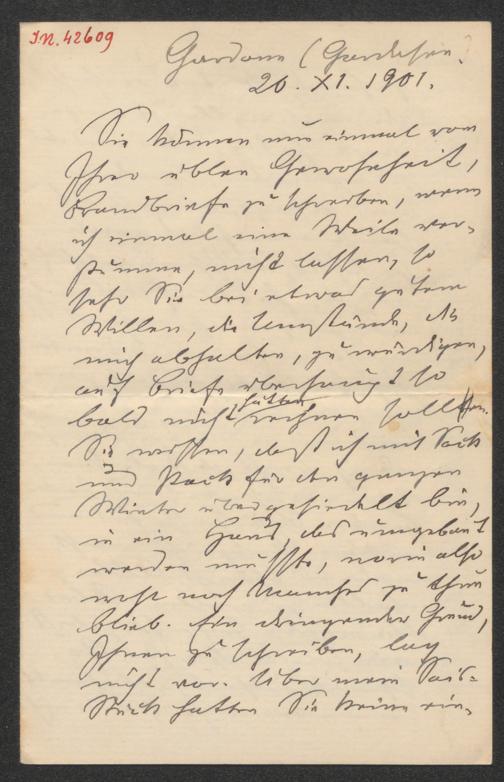 IN. 42609
Gardone (Gardesee.)
20. XI. 1901.
Sie können nun einmal von
Ihrer üblen Gewohnheit,
Brandbriefe zu schreiben, wenn
ich einmal eine Weile ver-
stumme, nicht lassen, so
sehr Sie bei etwas gutem
Willen, die Umstände, die
mich abhalten, zu würdigen,
auf Briefe überhaupt so
bald nicht hätten rechnen sollen.
Sie wissen, daß ich mit Sack
und Pack für den ganzen
Winter übergesiedelt bin,
in ein Haus, das umgebaut
werden mußte, worin also
noch Manches zu thun
blieb. Ein dringender Grund,
Ihnen zu schreiben, lag
nicht vor. Über mein
Stück hatten Sie keine ein-